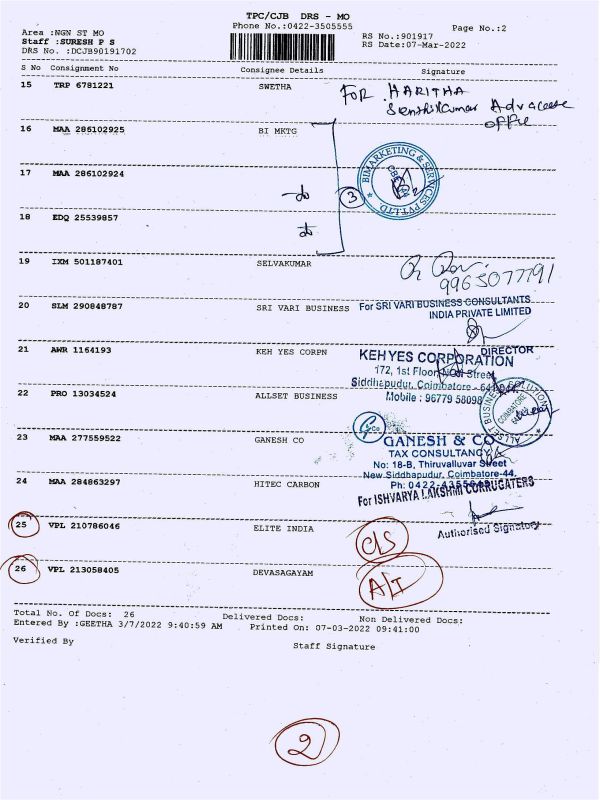 TPC/CJB DRS - MO
Phone No.:0422-3505555
Page No.:2
Area :NGN ST MO
Staff :SURESH P S
DRS No. :DCJB90191702
RS No.:901917
RS Date:07-Mar-2022
S No Consignment No Consignee Details Signature
15 TRP 6781221 SWETHA
FOR HARITHA
Senthilkumar Advocate
office
16 MAA 286102925 BI MKTG
17 MAA 286102924
3
BIMARKETING & SERVICES PVT.LTD.
18 EDQ 25539857
19 IXM 501187401 SELVAKUMAR
9965077791
20 SLM 290848787 SRI VARI BUSINESS
For SRI VARI BUSINESS CONSULTANTS
INDIA PRIVATE LIMITED
DIRECTOR
21 AWR 1164193 KEH YES CORPN
KEHYES CORPORATION
172, 1st Floor, NGN Street
Siddhapudur, Coimbatore
Mobile : 96779 58098
22 PRO 13034524 ALLSET BUSINESS
ALLSET BUSINESS SOLUTIONS
COIMBATORE
23 MAA 277559522 GANESH CO
GANESH & CO
TAX CONSULTANCY
No: 18-B, Thiruvalluvar Street
New Siddhapudur, Coimbatore-44.
24 MAA 284863297 HITEC CARBON
Ph: 0422-4355649
For ISHVARYA LAKSHMI CORRUGATERS
Authorised Signatory
25 VPL 210786046 ELITE INDIA
C/S
26 VPL 213058405 DEVASAGAYAM
A/I
Total No. Of Docs: 26 Delivered Docs: Non Delivered Docs:
Entered By :GEETHA 3/7/2022 9:40:59 AM Printed On: 07-03-2022 09:41:00
Verified By
Staff Signature
2